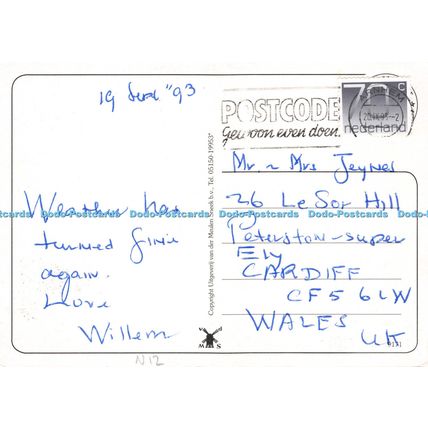 19 Sept "93
Weather has
turned fine
again.
Love
Willem
N12
Copyright Uitgeverij van der Meulen Sneek b.v., Tel. 05150-19953*
V
M S
POSTCODE
Gewoon even doen.
70 c
nederland
Mr & Mrs Jeynes
26 Le Sor Hill
Peterston-super
Ely
CARDIFF
CF5 6LW
WALES
UK
Dodo-Postcards Dodo-Postcards Dodo-Postcards Dodo-Postcards Dodo-Postcards